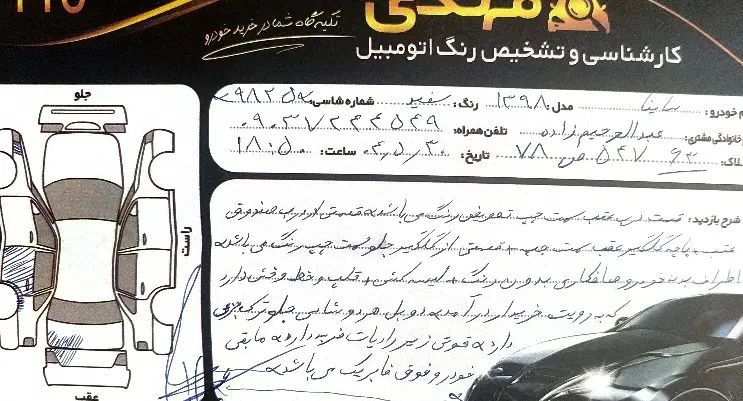 تکیه گاه شما در خرید خودرو
کارشناسی و تشخیص رنگ اتومبیل
م خودرو: ساینا مدل: ۱۳۹۸ رنگ: سفید شماره شاسی:
م خانوادگی مشتری: عبدالرحیم زاده تلفن همراه: ۰۹۰۳۷۲۴۴۵۴۹
لاک: ۶۲ ۵۴۷ ص ۷۸ تاریخ: ۰۲،۵،۳۰ ساعت: ۱۸:۵۰
جلو
راست
عقب
شرح بازدید: قسمت درب عقب سمت چپ تعویض رنگ می باشد قسمتی از درب صندوق
عقب + پاچه گلگیر عقب سمت چپ + قسمتی از گلگیر جلو سمت چپ رنگ می باشد
اطراف بدنه خودرو صافکاری بدون رنگ + لیسه گیری + قلپ و خط و خش دارد
که به رویت خریدار در آمده دوبل هر دو شاسی جلو ترک جزیی
دارد قوتی زیر رادیات ضربه دارد مابقی
خودرو فوق فابریک می باشد